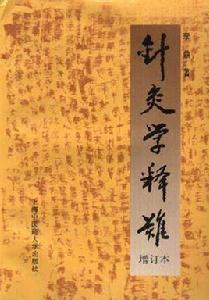 李鼎 著
针灸学释难
增订本
上海中医药大学出版社